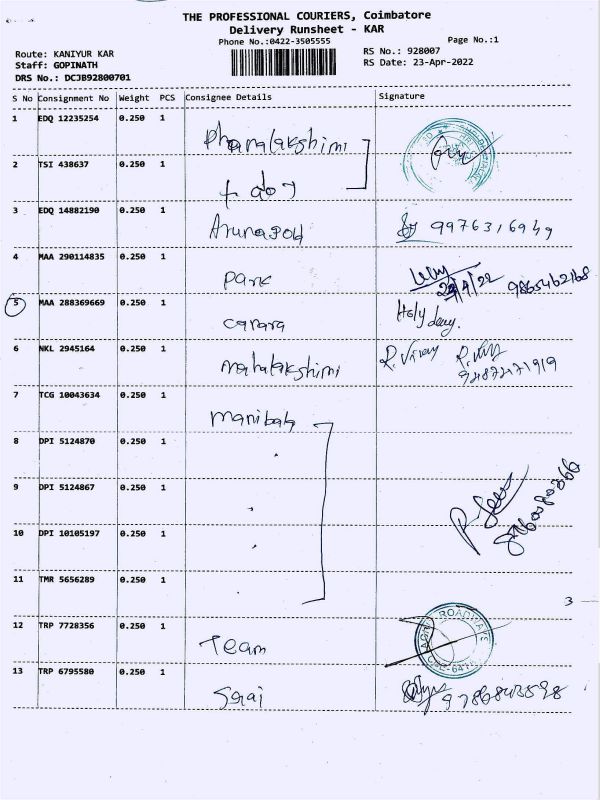 THE PROFESSIONAL COURIERS, Coimbatore
Delivery Runsheet - KAR
Phone No.:0422-3505555
Page No.:1
Route: KANIYUR KAR
RS No.: 928007
Staff: GOPINATH
RS Date: 23-Apr-2022
DRS No.: DCJB92800701
S No Consignment No Weight PCS Consignee Details Signature
1 EDQ 12235254 0.250 1
2 TSI 438637 0.250 1
3 EDQ 14882190 0.250 1 9976316949
4 MAA 290114835 0.250 1 Park 9865462168
5 MAA 288369669 0.250 1 canara Holy
6 NKL 2945164 0.250 1 mahalakshimi
7 TCG 10043634 0.250 1
8 DPI 5124870 0.250 1
9 DPI 5124867 0.250 1
10 DPI 10105197 0.250 1
11 TMR 5656289 0.250 1
3
12 TRP 7728356 0.250 1 Team ROADWAYS
13 TRP 6795580 0.250 1